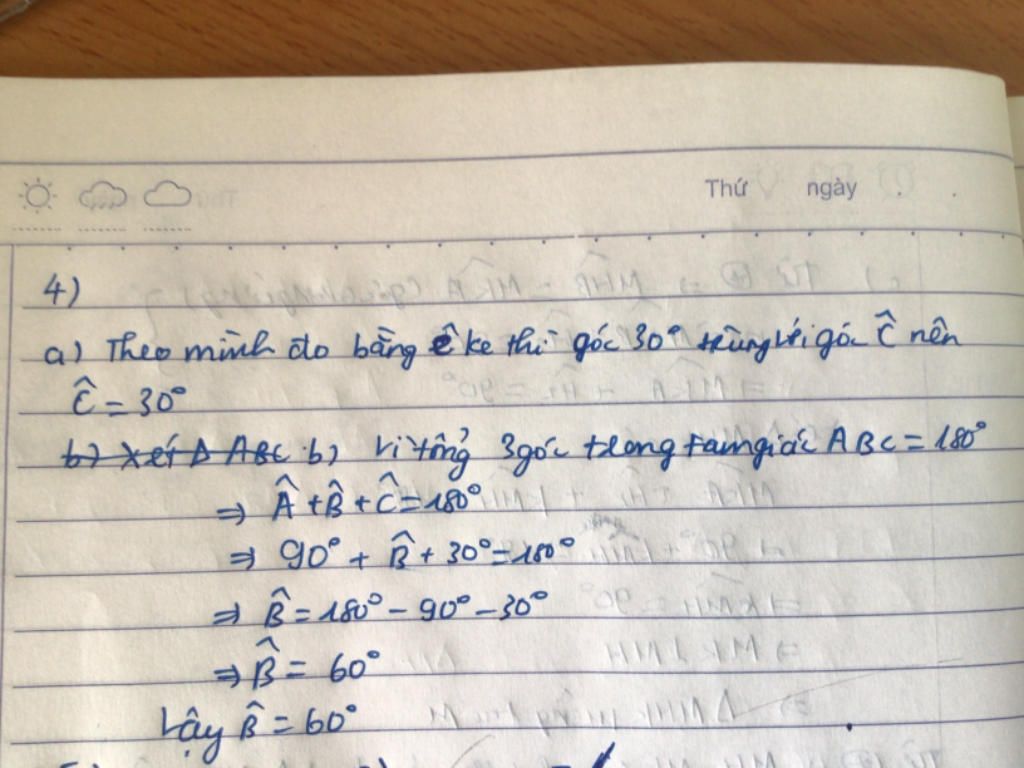 Thứ ngày
4)
a) Theo mình đo bằng ê ke thì góc 30° trùng với góc Ĉ nên
Ĉ = 30°
b) Xét Δ ABC b) Vì tổng 3 góc trong tam giác ABC = 180°
⇒ Â + B̂ + Ĉ = 180°
⇒ 90° + B̂ + 30° = 180°
⇒ B̂ = 180° - 90° - 30°
⇒ B̂ = 60°
Vậy B̂ = 60°